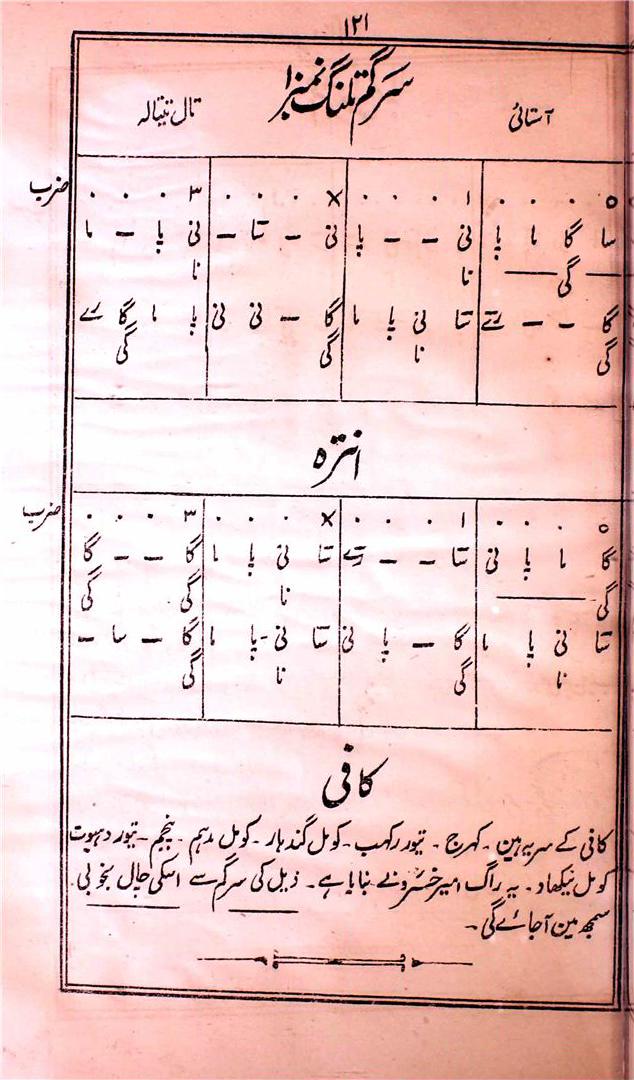 ۱۲۱
آستائی سرگم تلنگ نمبر۱ تال تیتالہ
ضرب
۰ . . . ۱ . . . × . . . ۳ . . .
سا گا ما پا نی – – پا نی – تا – نی پا – ما
گی نا نا
گا – – رتے تا نی پا ما گا – نی نی پا ما گا رے
گی نا گی گی
انترہ
ضرب
۰ . . . ۱ . . . × . . . ۳ . . .
گا ما پا نی تا – – رتے تا نی پا ما گا – – گا
گی نا گی گی
تا نی پا ما گا – پا نی تا نی – پا ما گا – سا –
نا گی نا گی
کافی
کافی کے سر یہ ہین ۔ کہرج ۔ تیور رکھب ۔ کومل گندہار ۔ کومل مدہم ۔ پنچم ۔ تیور دہیوت
کومل نیکھاد ۔ یہ راگ امیر خسرو نے بنایا ہے ۔ ذیل کی سرگم سے اسکی چال بخوبی
سمجھ مین آجائے گی ۔